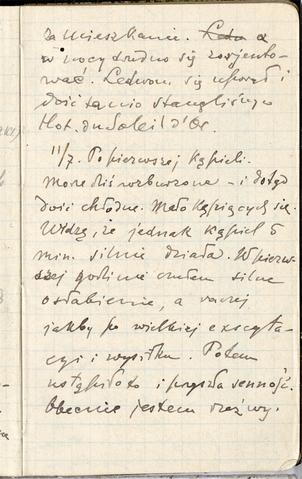 za mieszkanie. Ledwo a
w nocy trudno się zorjento-
wać. Ledwom się uporał i
dość tanio stanąłem
Hot. du Soleil d'Or.
11/7. Po pierwszej kąpieli.
morze dziś wzburzone – i dotąd
dość chłodne. Mało kąpiących się.
Widzę, że jednak kąpiel 5
min. silnie działa. W pierw-
szej godzinie czułem silne
osłabienie, a raczej
jakby po wielkiej excyta-
cyi i wysiłku. Potem
ustąpiło to i przyszła senność.
Obecnie jestem rzeźwy.